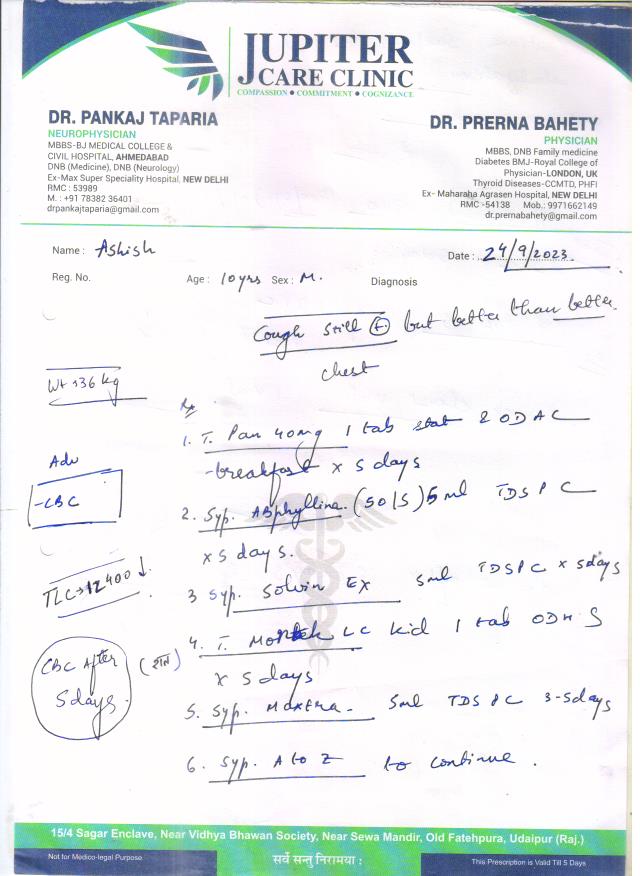 JUPITER
CARE CLINIC
COMPASSION • COMMITMENT • COGNIZANCE
DR. PANKAJ TAPARIA
NEUROPHYSICIAN
MBBS-BJ MEDICAL COLLEGE &
CIVIL HOSPITAL, AHMEDABAD
DNB (Medicine), DNB (Neurology)
Ex-Max Super Speciality Hospital, NEW DELHI
RMC : 53989
M. : +91 78382 36401
drpankajtaparia@gmail.com
DR. PRERNA BAHETY
PHYSICIAN
MBBS, DNB Family medicine
Diabetes BMJ-Royal College of
Physician-LONDON, UK
Thyroid Diseases-CCMTD, PHFI
Ex- Maharaha Agrasen Hospital, NEW DELHI
RMC -54138 Mob.: 9971662149
dr.prernabahety@gmail.com
Name : Ashish
Date : 24/9/2023
Reg. No. Age : 10yrs Sex : M. Diagnosis
Cough still (+) but better than better
chest
Wt →36 kg
Rx
1. T. Pan 40mg 1 tab stat & OD AC
-breakfast x 5 days
Adv
-CBC
2. Syp. ABphylline (50/5) 5 ml TDS PC
x 5 days.
TLC→12400↓
3 Syp. Solvin EX 5ml TDS PC x 5days
4. T. Montek LC kid 1 tab OD H S
x 5 days
CBC After (शाम)
5 days.
5. Syp. 5ml TDS PC 3-5days
6. Syp. A to Z to continue.
15/4 Sagar Enclave, Near Vidhya Bhawan Society, Near Sewa Mandir, Old Fatehpura, Udaipur (Raj.)
Not for Medico-legal Purpose
सर्वे सन्तु निरामया :
This Prescription is Valid Till 5 Days